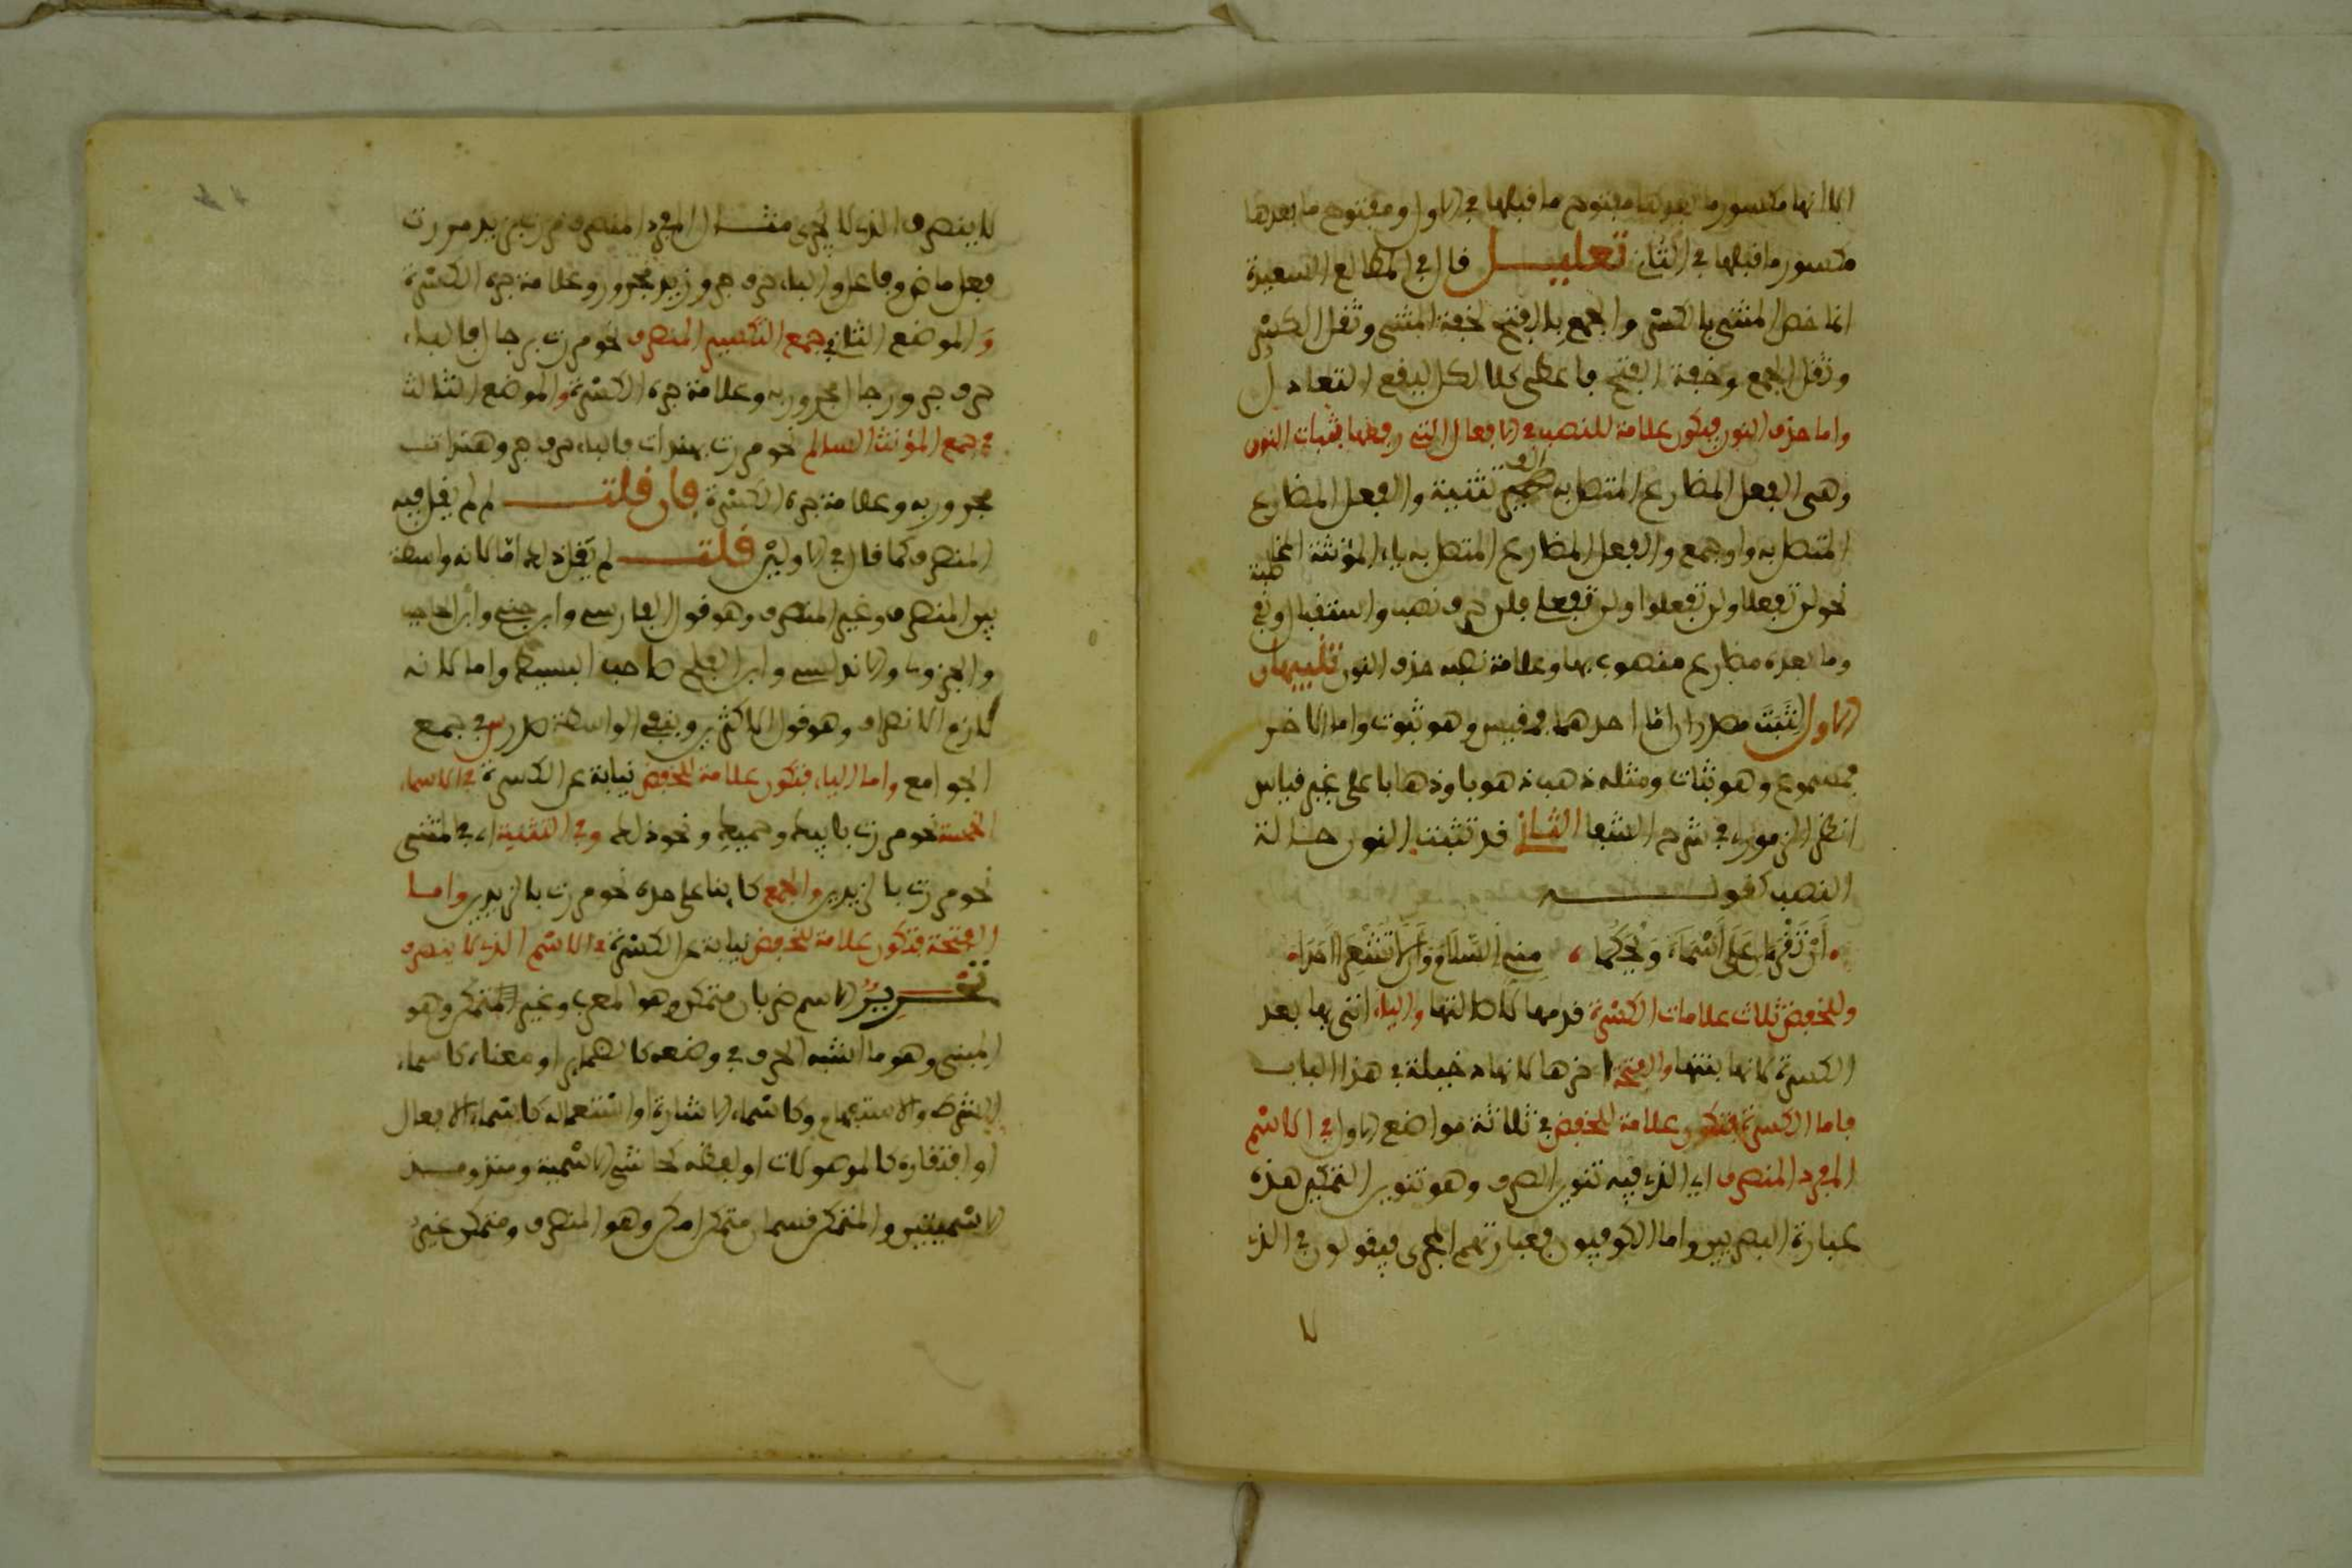 الا انها مكسور ما بعدها مفتوح ما قبلها في الاول ومفتوح ما بعدها
مكسور ما قبلها في الثاني تعليل قال في المطالع السعيدة
انما خص المثنى بالكسر والجمع بالفتح لخفة المثنى وثقل الكسر
وثقل الجمع وخفة الفتح فاعطى كلا لكل ليقع التعادل
واما حذف النون فيكون علامة للنصب في الافعال التي رفعها بثبات النون
وهي الفعل المضارع المتصل به الف تثنية والفعل المضارع
المتصل به واو جمع والفعل المضارع المتصل به ياء المؤنثة المخاطبة
نحو لن تفعلا ولن تفعلوا ولن تفعلي فلن حرف نصب واستقبال ونفي
وما بعده مضارع منصوب بها وعلامة نصبه حذف النون تنبيهان
الاول لثبت مصدران احدهما مقيس وهو ثبوت واما الاخر
فمسموع وهو ثبات ومثله ذهب ذهوبا وذهابا على غير قياس
انظر الزموري في شرح الشفا الثاني قد تثبت النون حالة
النصب كقوله
أن تقرآن على أسماء ويحكما مني السلام وأن لا تشعرا أحدا
وللخفض ثلاث علامات الكسرة قدمها لاصالتها والياء اتى بها بعد
الكسرة لانها بنتها والفتحة اخرها لانها دخيلة في هذا الباب
فاما الكسرة فتكون علامة للخفض في ثلاثة مواضع الاول في الاسم
المفرد المنصرف اي الذي فيه تنوين الصرف وهو تنوين التمكين هذه
عبارة البصريين واما الكوفيون فعبارتهم المجرى فيقولون في الذي
لا
لا ينصرف الذي لا يجرى مثال المفرد المنصرف مررت بزيد مررت
فعل ماض وفاعل والباء حرف جر وزيد مجرور وعلامة جره الكسرة
والموضع الثاني جمع التكسير المنصرف نحو مررت برجال فالباء
حرف جر ورجال مجرور به وعلامة جره الكسرة والموضع الثالث
في جمع المؤنث السالم نحو مررت بهندات فالباء حرف جر وهندات
مجرور به وعلامة جره الكسرة فان قلت لم لم يقل فيه
المنصرف كما قال في الاولين قلت لم يقل ذلك اما لانه واسطة
بين المنصرف وغير المنصرف وهو قول الفارسي وابن جني وابن الحاجب
والجزولي والاندلسي وابن العلج صاحب البسيط واما لانه
لازم الانصراف وهو قول الاكثرين وبنفي الواسطة صدر س في جمع
الجوامع واما الياء فتكون علامة للخفض نيابة عن الكسرة في الاسماء
الخمسة نحو مررت بابيك وحميك ونحو ذلك وفي التثنية اي في المثنى
نحو مررت بالزيدين والجمع كائنا على حده نحو مررت بالزيدين واما
الفتحة فتكون علامة للخفض نيابة عن الكسرة في الاسم الذي لا ينصرف
تقرير الاسم ضربان متمكن وهو المعرب وغير المتمكن وهو
المبني وهو ما اشبه الحرف في وضعه كالضمائر او معناه كاسماء
الشرط والاستفهام وكاسماء الاشارة او استعماله كاسماء الافعال
او افتقاره كالموصولات او لفظه كحاشى الاسمية ومنذ ومذ
الاسميتين والمتمكن قسمان متمكن امكن وهو المنصرف ومتمكن غير